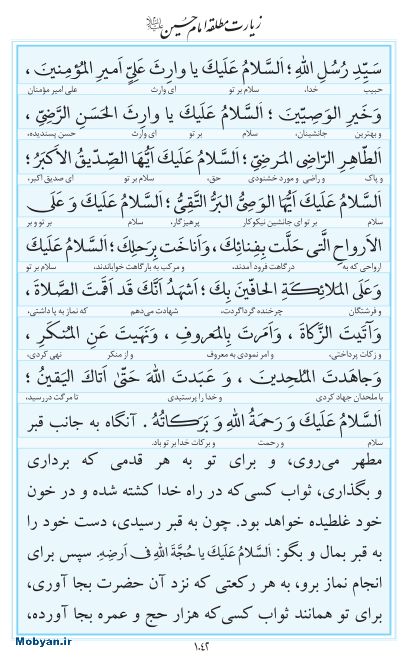 زیارت مطلقه امام حسین علیه‌السلام
سَیِّدِ رُسُلِ اللهِ؛ اَلسَّلامُ عَلَیکَ یا وارِثَ عَلِیٍّ اَمیرِ المُؤمِنینَ،
حبیب خدا، سلام بر تو ای وارث علی امیر مؤمنان
وَ خَیرِ الوَصِیّینَ؛ اَلسَّلامُ عَلَیکَ یا وارِثَ الحَسَنِ الرَّضِیِّ،
و بهترین جانشینان، سلام بر تو ای وارث حسن پسندیده،
اَلطّاهِرِ الرّاضِی المَرضِیِّ؛ اَلسَّلامُ عَلَیکَ اَیُّهَا الصِّدّیقُ الاَکبَرُ؛
و پاک و راضی و مورد خشنودی حق، سلام بر تو ای صدیق اکبر،
اَلسَّلامُ عَلَیکَ اَیُّهَا الوَصِیُّ البَرُّ التَّقِیُّ؛ اَلسَّلامُ عَلَیکَ وَ عَلَی
سلام بر تو ای جانشین نیکوکار پرهیزگار، سلام بر تو و بر
الاَرواحِ الَّتی حَلَّت بِفِنائِکَ، وَ اَناخَت بِرَحلِکَ؛ اَلسَّلامُ عَلَیکَ
ارواحی که به درگاهت فرود آمدند، و مرکب به بارگاهت خواباندند، سلام بر تو
وَعَلَی المَلائِکَةِ الحافّینَ بِکَ؛ اَشهَدُ اَنَّکَ قَد اَقَمتَ الصَّلاةَ،
و فرشتگان چرخنده گرداگردت، شهادت می‌دهم که نماز به پا داشتی،
وَ آتَیتَ الزَّکاةَ، وَ اَمَرتَ بِالمَعروفِ، وَ نَهَیتَ عَنِ المُنکَرِ،
و زکات پرداختی، و امر نمودی به معروف و از منکر نهی کردی،
وَ جاهَدتَ المُلحِدینَ، وَ عَبَدتَ اللهَ حَتّی اَتاکَ الیَقینُ؛
با ملحدان جهاد کردی و خدا را پرستیدی تا مرگت دررسید،
اَلسَّلامُ عَلَیکَ وَ رَحمَةُ اللهِ وَ بَرَکاتُهُ. آنگاه به جانب قبر
سلام و رحمت و برکات خدا بر تو باد.
مطهر می‌روی، و برای تو به هر قدمی که برداری
و بگذاری، ثواب کسی‌که در راه خدا کشته شده و در خون
خود غلطیده خواهد بود. چون به قبر رسیدی، دست خود را
به قبر بمال و بگو: اَلسَّلامُ عَلَیکَ یا حُجَّةَ اللهِ فی اَرضِهِ. سپس برای
انجام نماز برو، به هر رکعتی که نزد آن حضرت بجا آوری،
برای تو همانند ثواب کسی‌که هزار حج و عمره بجا آورده،
۱۰۴۲
Mobyan.ir